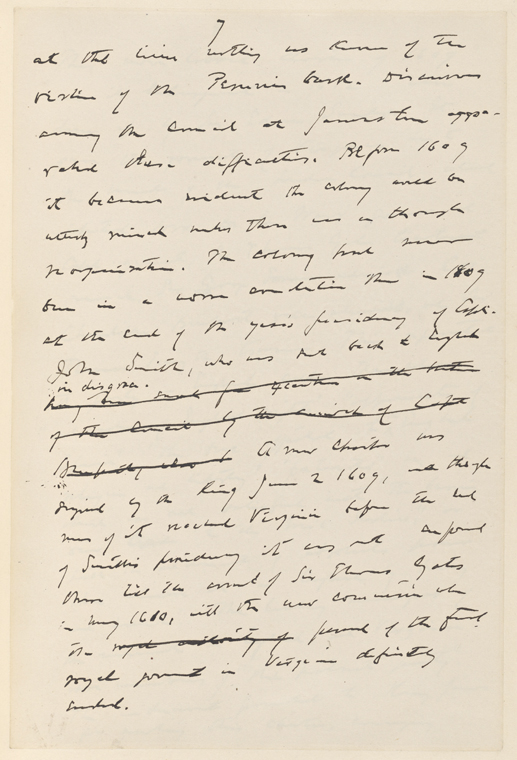 7
at the time nothing was known of the
virtue of the Peruvian bark. Discussions
among the Council at Jamestown aggra-
vated these difficulties. Before 1609
it became evident the colony would be
utterly ruined unless there was a thorough
reorganization. The colony had never
been in a worse condition than in 1609
at the end of the year's presidency of Capt.
John Smith, who was sent back to England
in disgrace.
of the Council by the of Capt
A new charter was
signed by the King June 2 1609, and though
news of it reached Virginia before the end
of Smith's presidency it was not enforced
there till the arrival of Sir Thomas Gates
in May 1610, with the new commission when
the royal authority of period of the first
royal government in Virginia definitely
ended.